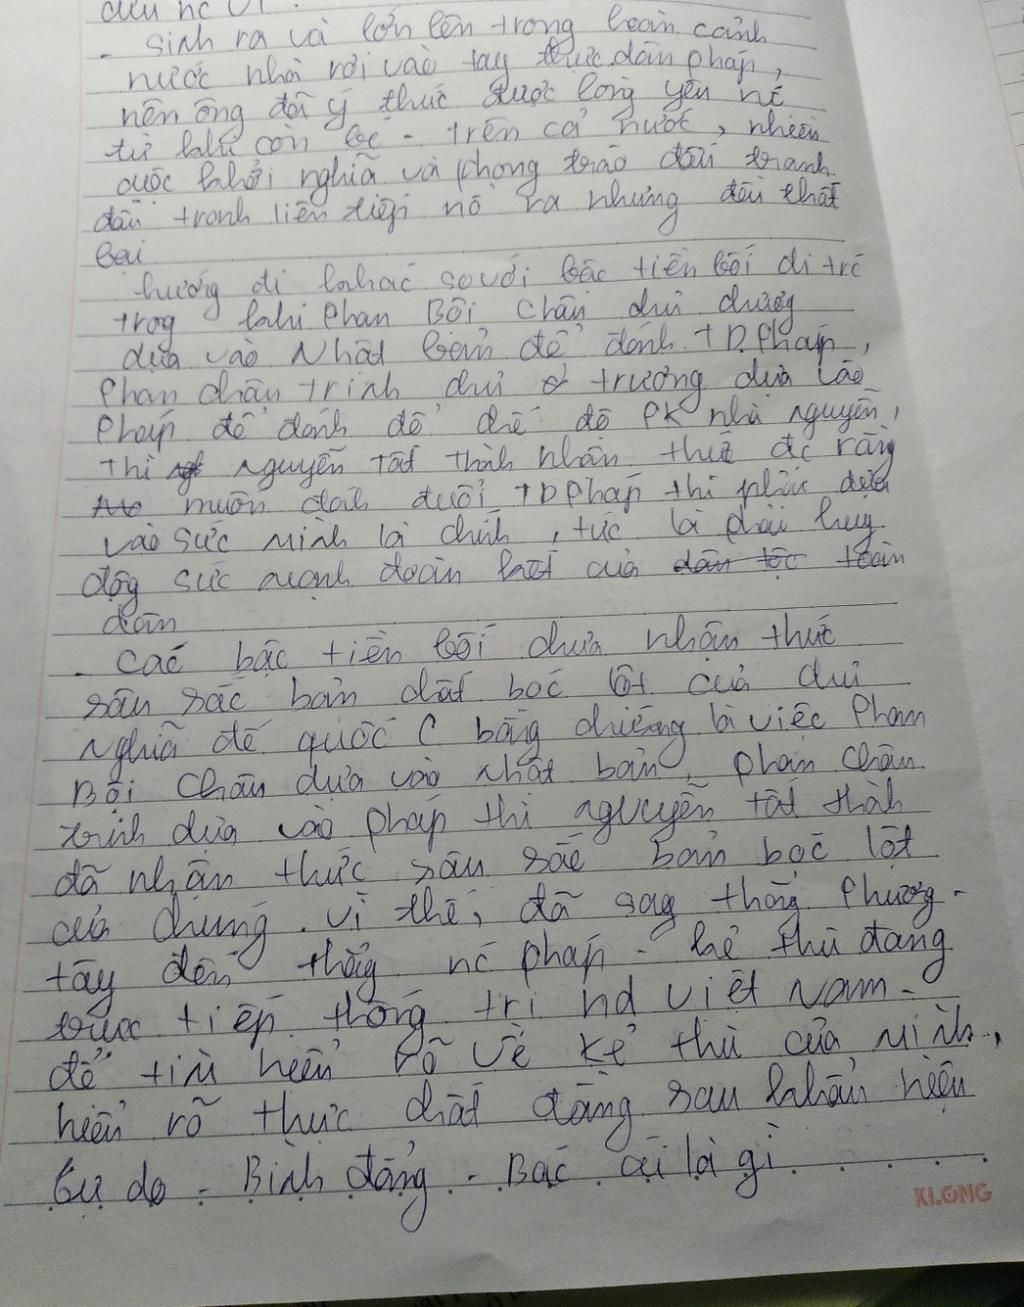 cứu nc
- sinh ra và lớn lên trong hoàn cảnh
nước nhà rơi vào tay thực dân pháp,
nên ông đã ý thức được lòng yêu nc
từ khi còn bé - trên cả nước, nhiều
cuộc khởi nghĩa và phong trào đấu tranh
đấu tranh liên tiếp nổ ra nhưng đều thất
bại
hướng đi khác so với bậc tiền bối đi trc
trog khi Phan Bội Châu chủ chương
dựa vào Nhật bản để đánh TD.Pháp,
Phan châu trinh chủ trương dựa vào
Pháp để đánh đổ chế độ PK nhà nguyễn,
thì nguyễn Tất thành nhận thức đc rằng
muốn đánh đuổi TD Pháp thì phải dựa
vào sức mình là chính, tức là phải huy
độg sức mạnh đoàn kết của dân tộc toàn
dân
- các bậc tiền bối chưa nhận thức
sâu sắc bản chất bóc lột của chủ
nghĩa đế quốc ( bằng chứng là việc Phan
Bội Châu dựa vào nhật bản, phan châu
trinh dựa vào pháp thì nguyễn tất thành
đã nhận thức sâu sắc bản bóc lột
của chúng. vì thế, đã sag thẳng Phương
tây đến thẳng nc pháp - kẻ thù đang
trực tiếp thống trị nd việt Nam -
để tìm hiểu rõ về kẻ thù của mình,
hiểu rõ thực chất đằng sau khẩu hiệu
tự do - Bình đẳng - Bác ái là gì
KLONG